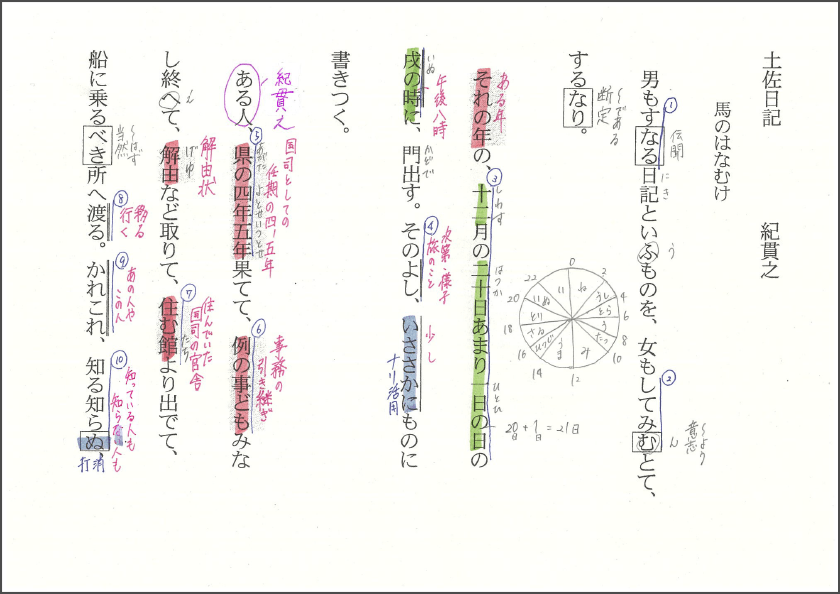 土佐日記　紀貫之
馬のはなむけ
① 伝聞 にき う ② ～より 意志 ん
男もすなる日記といふものを、女もしてみむとて、
～である 断定
するなり。
ある年 ③ しわす はつか ひとひ
それの年の、十二月の二十日あまり一日の日の
20日+1日=21日
0 2 4 6 8 10 12 14 16 18 20 22
ね うし とら う たつ み うま ひつじ さる とり いぬ い
いぬ 午後八時 かどで ④ 次第・様子 旅のこと 少し
戌の時に、門出す。そのよし、いささかにものに
ナリ活用
書きつく。
紀貫之 ⑤ 国司としての 任期の四・五年 あがた よとせいつとせ ⑥ 事務の 引き継ぎ
ある人、県の四年五年果てて、例の事どもみな
え 解由状 げゆ ⑦ 住んでいた 国司の官舎 たち
し終へて、解由など取りて、住む館より出でて、
～はず 当然 ⑧ 移る 行く ⑨ あの人や この人 ⑩ 知っている人も 知らない人も
船に乗るべき所へ渡る。かれこれ、知る知らぬ、
打消